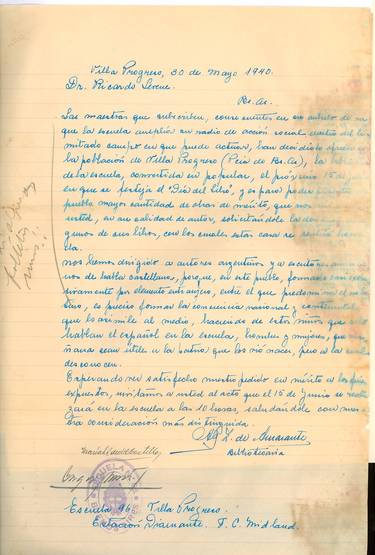 Villa Progreso, 30 de Mayo 1940.
Dr. Ricardo Levene.
Bs. As.
Las maestras que subscriben, consecuentes en su anhelo de
que la escuela amplíe su radio de acción social dentro del li
mitado campo en que puede actuar, han decidido
la población de Villa Progreso (Pcia de Bs. As), la
de la escuela, convertida en popular, el próximo 15 de
en que se festeja el "Día del Libro", y es para poder
pueblo mayor cantidad de obras de mérito, que nos
usted, en su calidad de autor, solicitándole la
gunos de sus libros, con los cuales esta casa se
nos hemos dirigido a autores argentinos y a escritores
nos de habla castellana, porque, en este pueblo, formado casi
sivamente por elemento extranjero, entre el que predomina el
es preciso formar la conciencia nacional y
que lo asimile al medio, haciendo de estos niños que
hablan el español en la escuela, hombres y mujeres, que
ñana sean útiles a la patria que los vió nacer, pero a la
desconocen.
Esperando ver satisfecho nuestro pedido en mérito a los
expuestos, invitamos a usted al acto que el 15 de Junio se
zará en la escuela a las 10 horas, saludándole con nues
tra consideración más distinguida.
Z. de Amarante
Bibliotecaria
Escuela 96. Villa Progreso.
Estación Diamante. F. C. Midland.